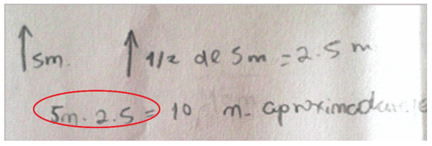 ↑5m. ↑ 1/2 de 5m = 2.5 m
5m. 2.5 = 10 m. aproximadame